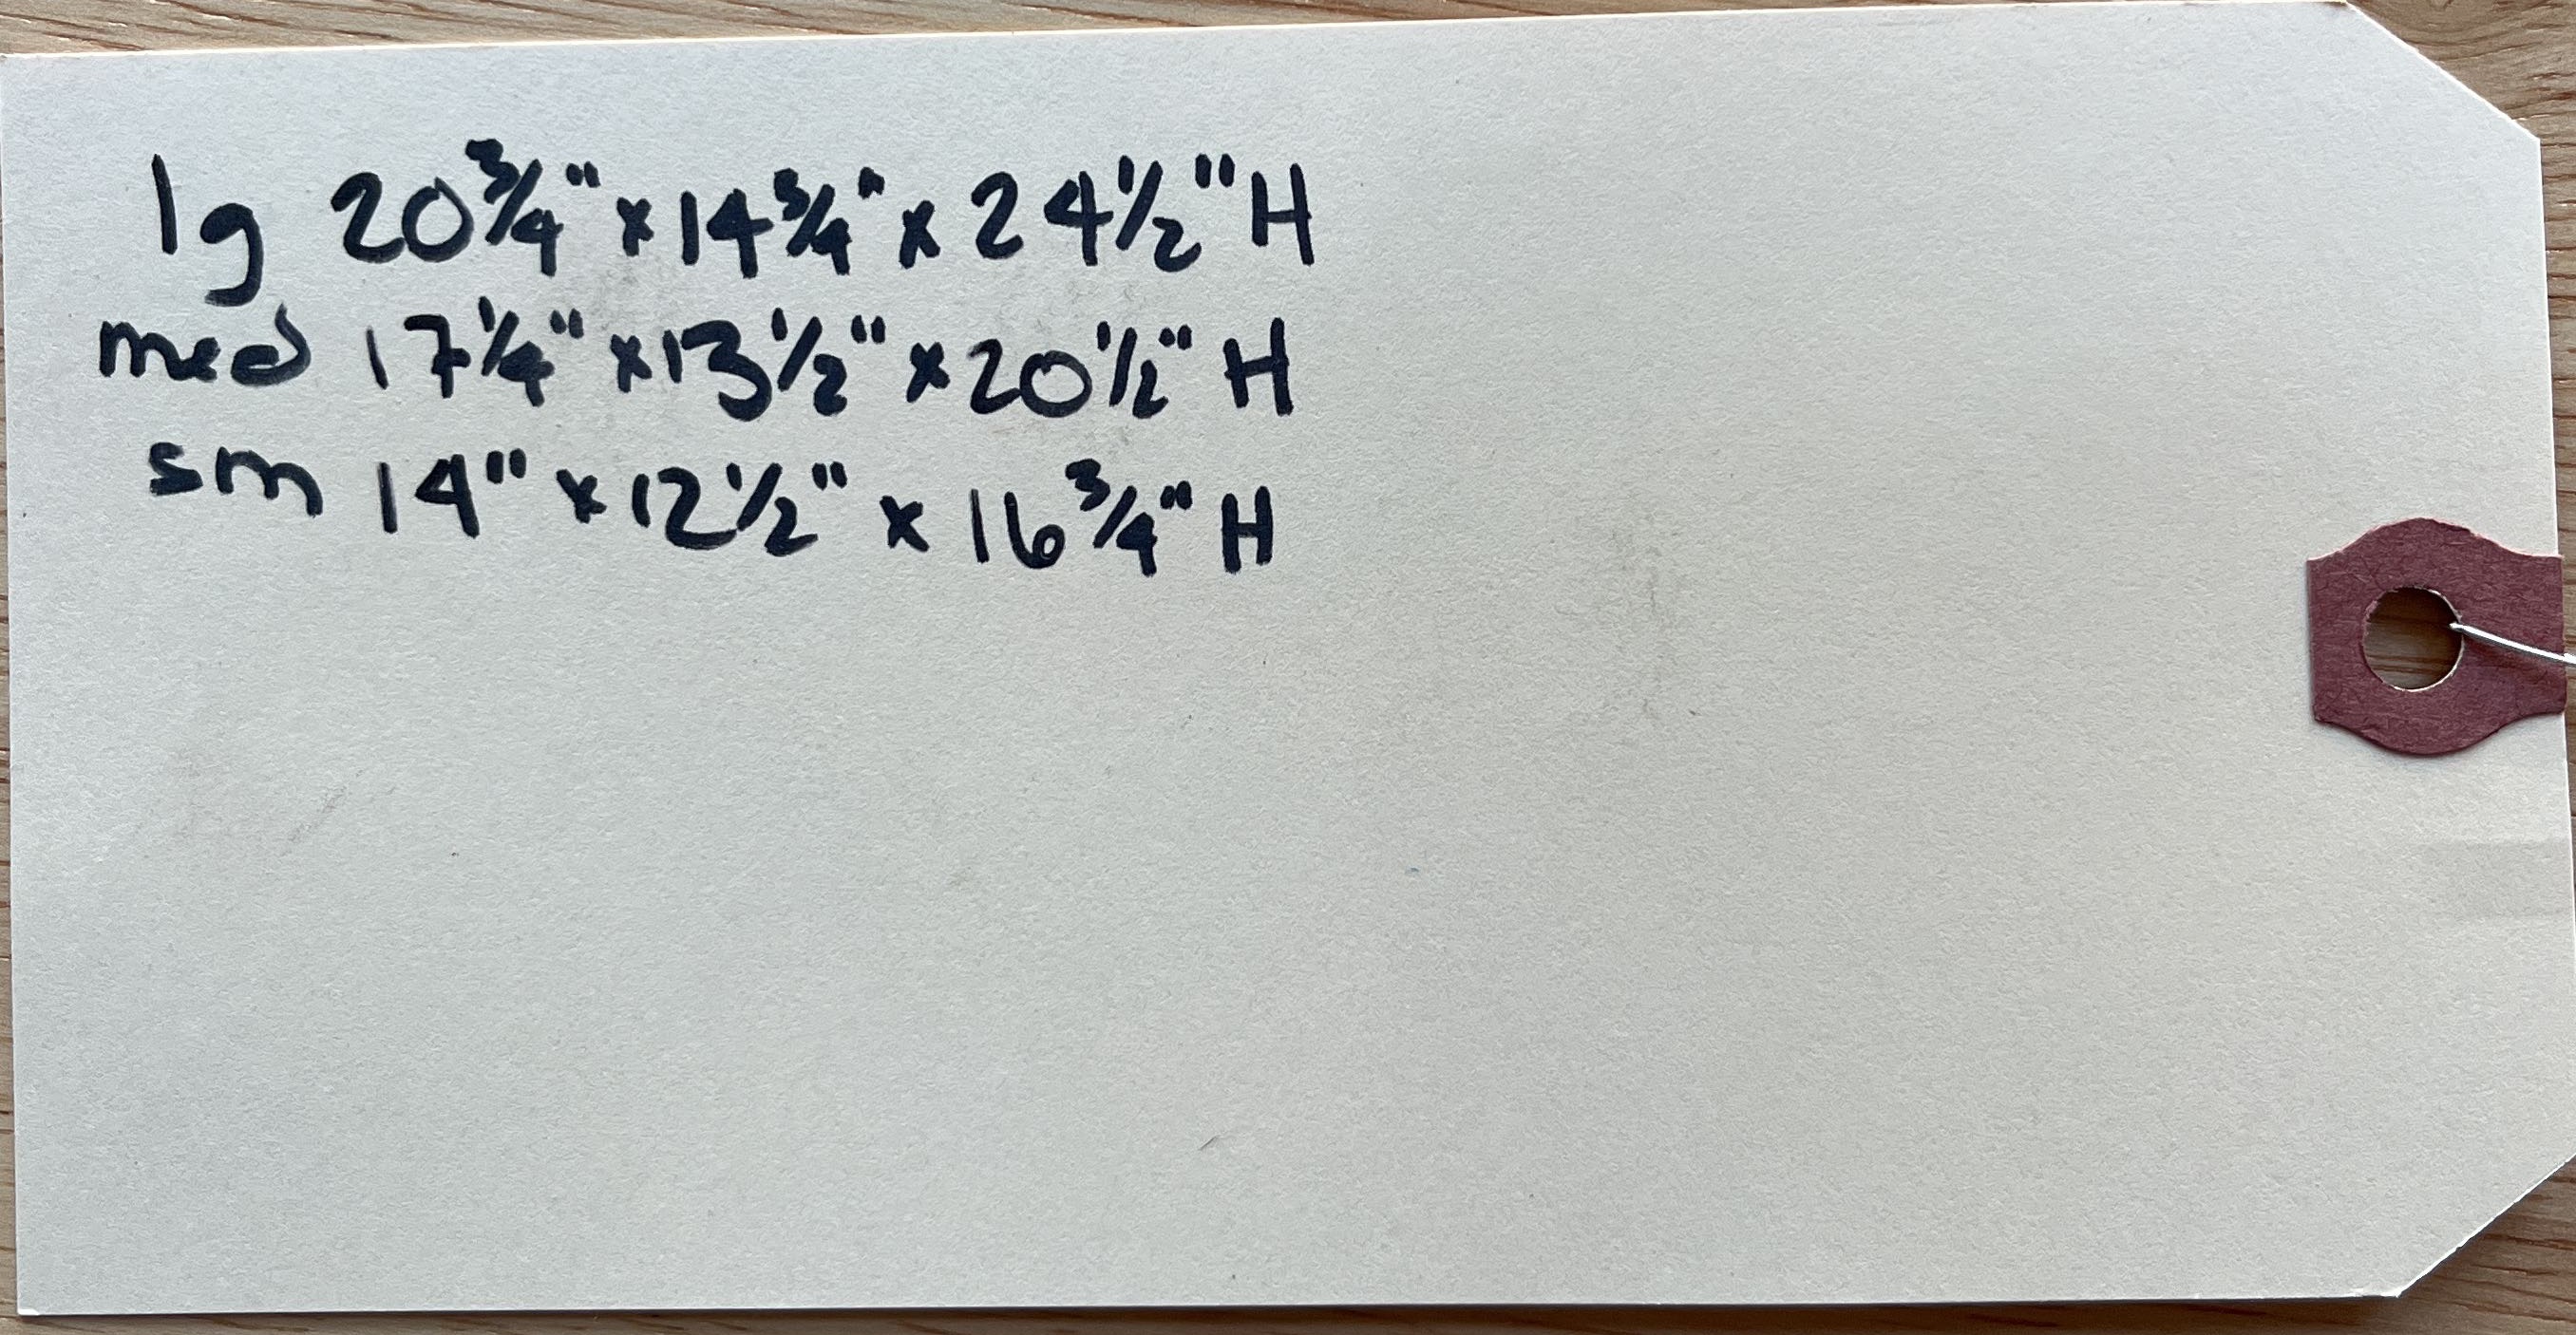 lg 20 3/4" x 14 3/4" x 24 1/2" H
med 17 1/4" x 13 1/2" x 20 1/2" H
sm 14" x 12 1/2" x 16 3/4" H